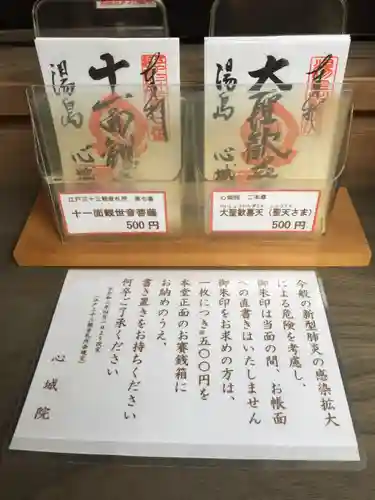 奉拝
十一面観
湯島
心城
奉拝
大聖歓喜
湯島
心城
江戸三十三観音札所 第七番
十一面観世音菩薩
500円
心城院 ご本尊
大聖歓喜天（聖天さま）
500円
今般の新型肺炎の感染拡大
による危険を考慮し、
御朱印は当面の間、お帳面
への直書きはいたしません
御朱印をお求めの方は、
一枚につき五〇〇円を
本堂正面のお賽銭箱に
お納めのうえ、
書き置きをお持ちください
何卒ご了承ください
心城院